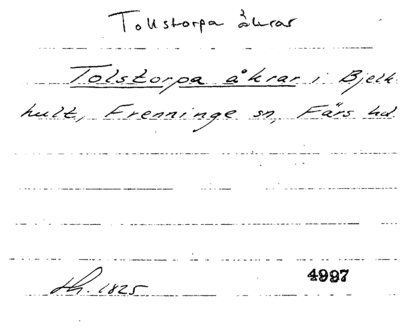 Tollstorpa åkrar
Tolstorpa åkrar i Bjelk-
hult, Frenninge sn, Färs hd
1825
4997